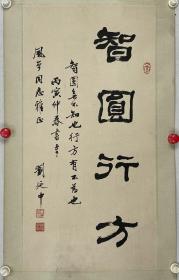 智圓行方
智圓無不知也行方有不為也
丙寅仲春書奉
同志雅正
劉